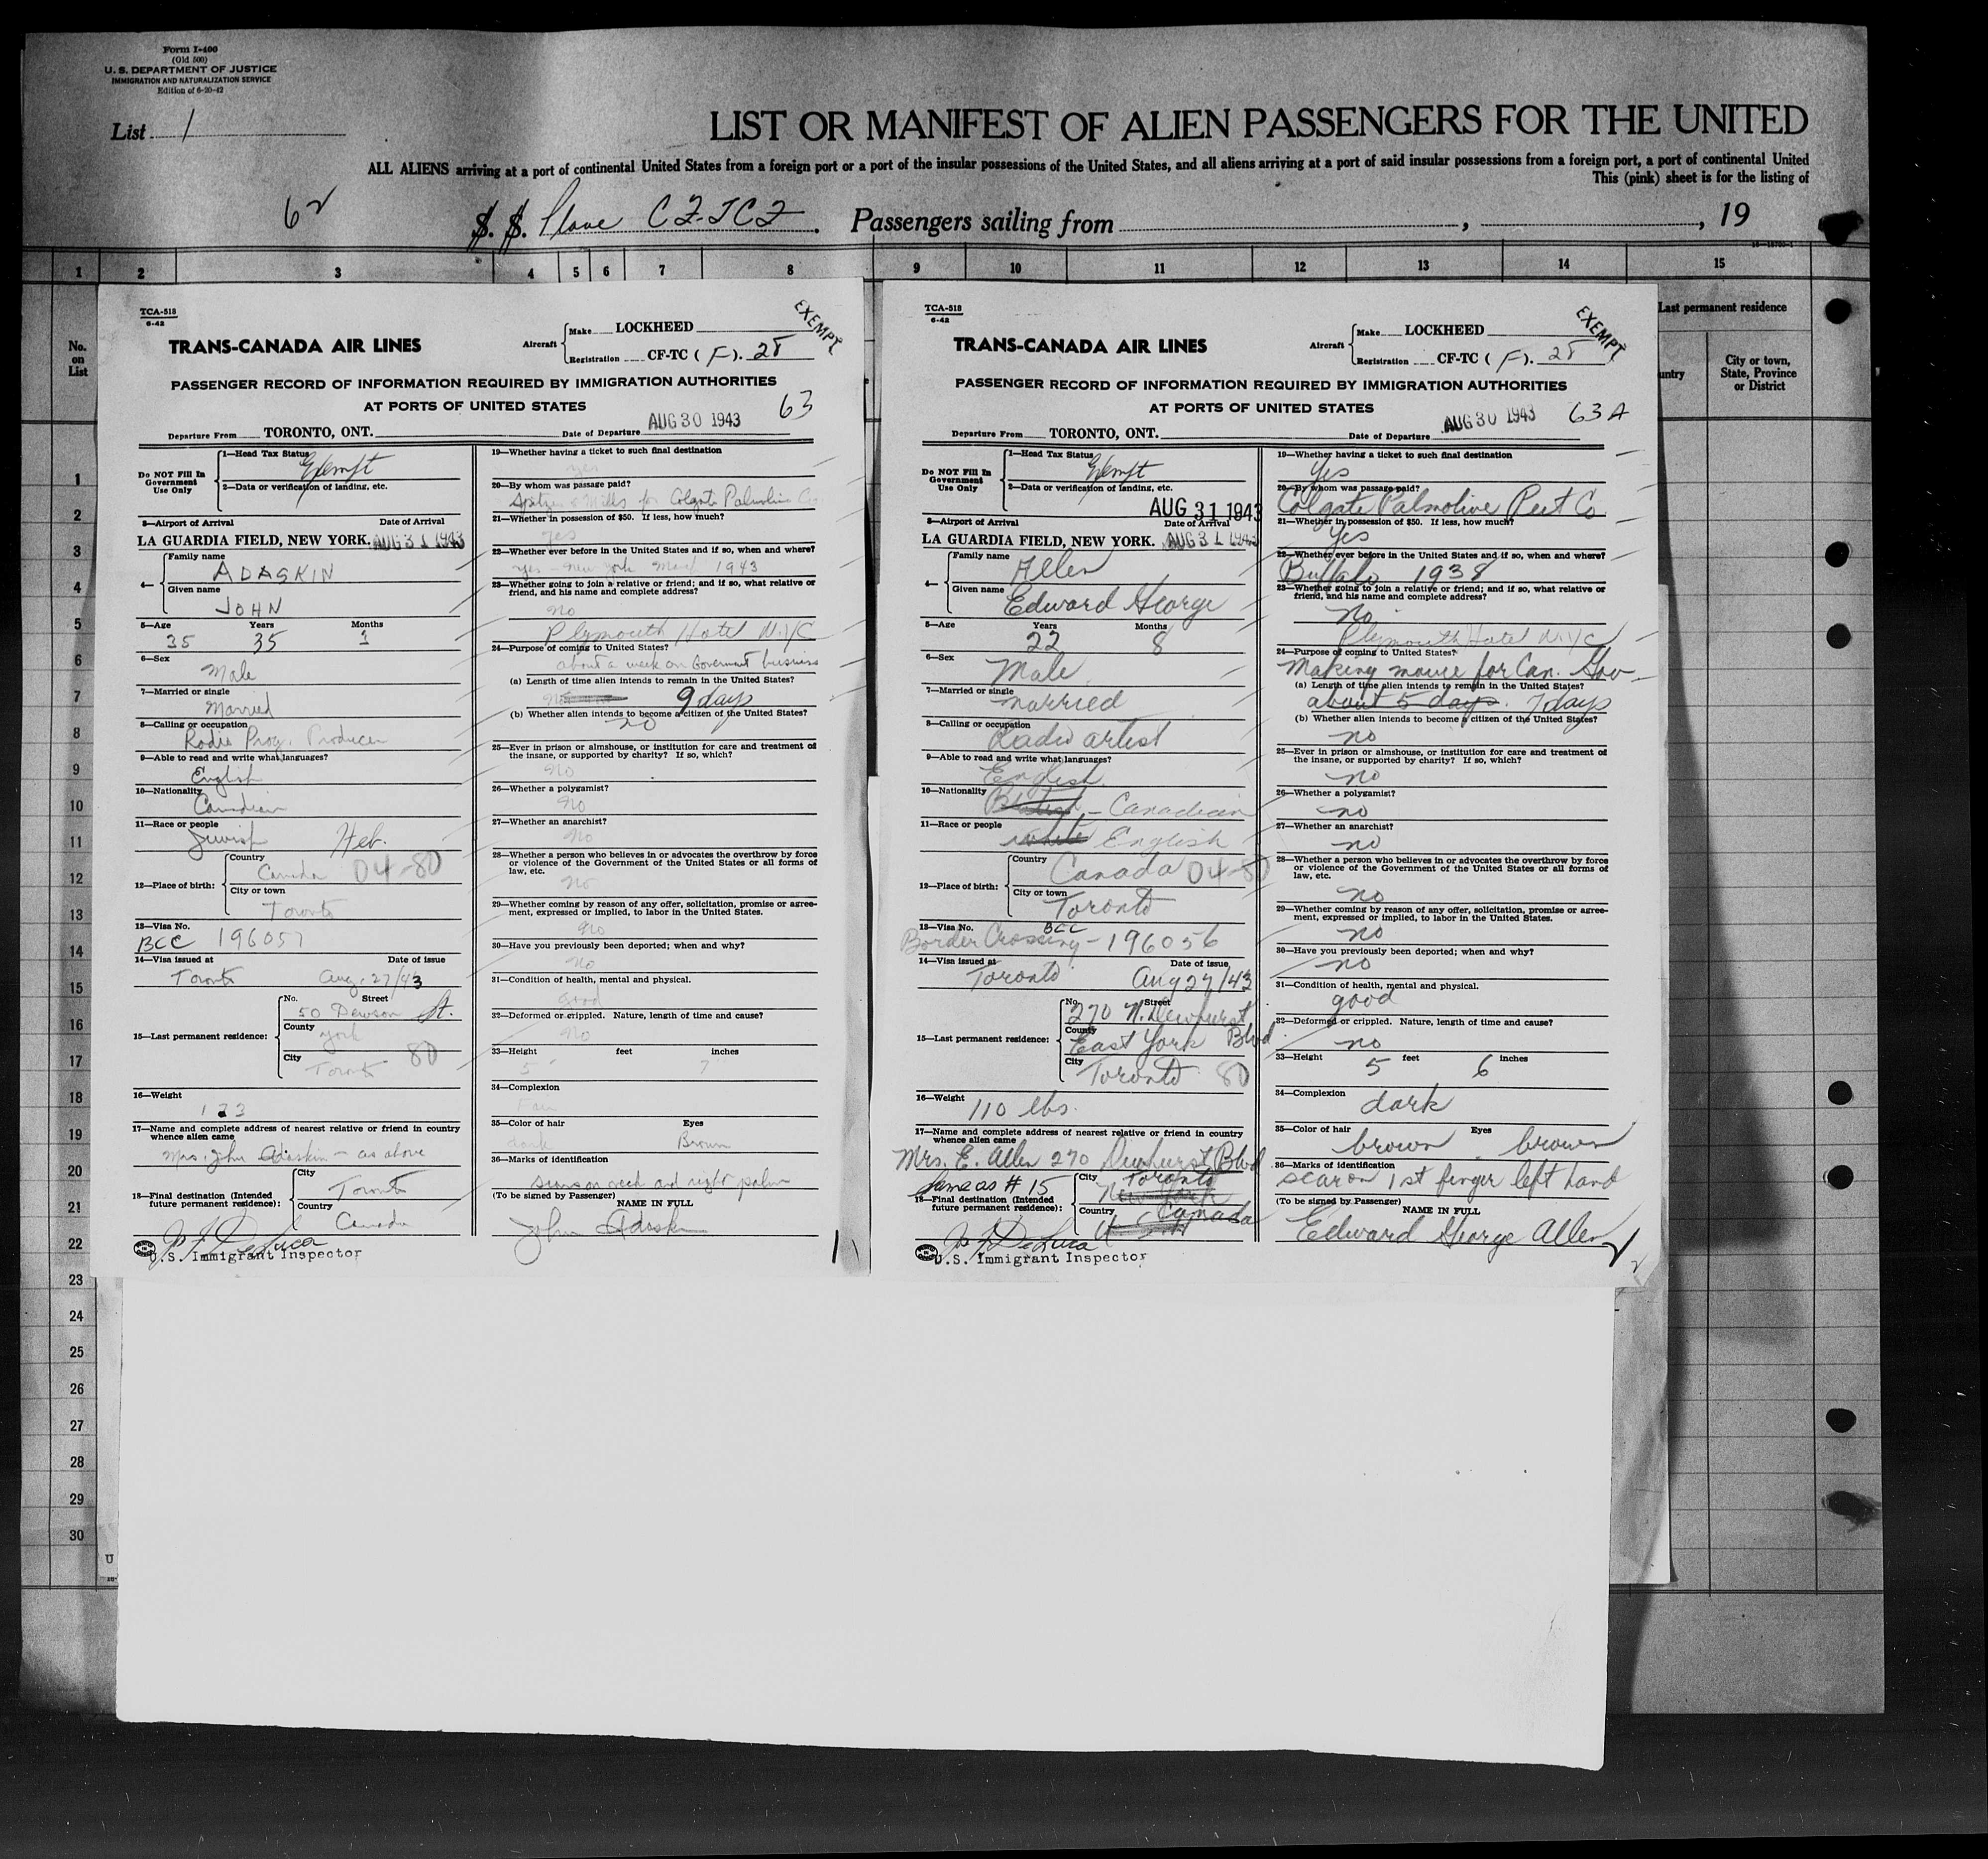 Form I-400
(Old 500)
U. S. DEPARTMENT OF JUSTICE
IMMIGRATION AND NATURALIZATION SERVICE
Edition of 6-20-42
List 1
LIST OR MANIFEST OF ALIEN PASSENGERS FOR THE UNITED
ALL ALIENS arriving at a port of continental United States from a foreign port or a port of the insular possessions of the United States, and all aliens arriving at a port of said insular possessions from a foreign port, a port of continental United
This (pink) sheet is for the listing of
62
S. S. Plane Passengers sailing from , , 19
1 2 3 4 5 6 7 8 9 10 11 12 13 14 15
No. on List
Last permanent residence
untry
City or town, State, Province or District
1
2
3
4
5
6
7
8
9
10
11
12
13
14
15
16
17
18
19
20
21
22
23
24
25
26
27
28
29
30
U
TCA-518
6-42
EXEMPT
TRANS-CANADA AIR LINES
Aircraft
Make LOCKHEED
Registration CF-TC ( F ). 28
PASSENGER RECORD OF INFORMATION REQUIRED BY IMMIGRATION AUTHORITIES
AT PORTS OF UNITED STATES
63
Departure From TORONTO, ONT. Date of Departure AUG 30 1943
Do NOT Fill In Government Use Only
1—Head Tax Status Exempt
2—Data or verification of landing, etc.
3—Airport of Arrival Date of Arrival
LA GUARDIA FIELD, NEW YORK. AUG 31 1943
4— Family name ADASKIN
Given name JOHN
5—Age Years Months
35 35 1
6—Sex
Male
7—Married or single
Married
8—Calling or occupation
Radio Prog. Producer
9—Able to read and write what languages?
English
10—Nationality
Canadian
11—Race or people
Jewish Heb.
12—Place of birth:
Country
Canada 04-80
City or town
Toronto
13—Visa No.
BCC 196057
14—Visa issued at Date of issue
Toronto Aug. 27/43
15—Last permanent residence:
No. Street
50 Dewson St.
County
York
City
Toronto 80
16—Weight
17—Name and complete address of nearest relative or friend in country
whence alien came
Mrs. John Adaskin — as above
18—Final destination (Intended
future permanent residence):
City
Toronto
Country
Canada
U.S. Immigrant Inspector
19—Whether having a ticket to such final destination
yes
20—By whom was passage paid?
Spitzer & Mills for Colgate Palmolive Co
21—Whether in possession of $50. If less, how much?
yes
22—Whether ever before in the United States and if so, when and where?
yes - New York 1943
23—Whether going to join a relative or friend; and if so, what relative or
friend, and his name and complete address?
no
Plymouth Hotel N.Y.C
24—Purpose of coming to United States?
about a week on Goverment business
(a) Length of time alien intends to remain in the United States?
9 days
(b) Whether alien intends to become a citizen of the United States?
no
25—Ever in prison or almshouse, or institution for care and treatment of
the insane, or supported by charity? If so, which?
no
26—Whether a polygamist?
no
27—Whether an anarchist?
no
28—Whether a person who believes in or advocates the overthrow by force
or violence of the Government of the United States or all forms of
law, etc.
no
29—Whether coming by reason of any offer, solicitation, promise or agree-
ment, expressed or implied, to labor in the United States.
no
30—Have you previously been deported; when and why?
no
31—Condition of health, mental and physical.
good
32—Deformed or crippled. Nature, length of time and cause?
no
33—Height feet inches
5 7
34—Complexion
Fair
35—Color of hair Eyes
dark Brown
36—Marks of identification
on neck and right palm
(To be signed by Passenger) NAME IN FULL
John Adaskin
1
TCA-518
6-42
EXEMPT
TRANS-CANADA AIR LINES
Aircraft
Make LOCKHEED
Registration CF-TC ( F ). 28
PASSENGER RECORD OF INFORMATION REQUIRED BY IMMIGRATION AUTHORITIES
AT PORTS OF UNITED STATES
63 A
Departure From TORONTO, ONT. Date of Departure AUG 30 1943
Do NOT Fill In Government Use Only
1—Head Tax Status Exempt
2—Data or verification of landing, etc.
AUG 31 1943
3—Airport of Arrival Date of Arrival
LA GUARDIA FIELD, NEW YORK. AUG 31 1943
4— Family name Allen
Given name Edward George
5—Age Years Months
22 8
6—Sex
Male
7—Married or single
married
8—Calling or occupation
Radio artist
9—Able to read and write what languages?
English
10—Nationality
British - Canadian
11—Race or people
white English
12—Place of birth:
Country
Canada 04-80
City or town
Toronto
13—Visa No. BCC
Border Crossing - 196056
14—Visa issued at Date of issue
Toronto Aug 27/43
15—Last permanent residence:
No. Street
270 N. Dewhurst
County
East York Blvd
City
Toronto 80
16—Weight
110 lbs.
17—Name and complete address of nearest relative or friend in country
whence alien came
Mrs. E. Allen 270 Dewhurst Blvd
Same as # 15
18—Final destination (Intended
future permanent residence):
City Toronto
New York
Country Canada
U.S. Immigrant Inspector
19—Whether having a ticket to such final destination
Yes
20—By whom was passage paid?
Colgate Palmolive Peet Co
21—Whether in possession of $50. If less, how much?
Yes
22—Whether ever before in the United States and if so, when and where?
Buffalo 1938
23—Whether going to join a relative or friend; and if so, what relative or
friend, and his name and complete address?
no
Plymouth Hotel N.Y.C
24—Purpose of coming to United States?
Making movie for Can. Gov.
(a) Length of time alien intends to remain in the United States?
about 5 days. 7 days
(b) Whether alien intends to become a citizen of the United States?
no
25—Ever in prison or almshouse, or institution for care and treatment of
the insane, or supported by charity? If so, which?
no
26—Whether a polygamist?
no
27—Whether an anarchist?
no
28—Whether a person who believes in or advocates the overthrow by force
or violence of the Government of the United States or all forms of
law, etc.
no
29—Whether coming by reason of any offer, solicitation, promise or agree-
ment, expressed or implied, to labor in the United States.
no
30—Have you previously been deported; when and why?
no
31—Condition of health, mental and physical.
good
32—Deformed or crippled. Nature, length of time and cause?
no
33—Height feet inches
5 6
34—Complexion
dark
35—Color of hair Eyes
brown brown
36—Marks of identification
scar on 1st finger left hand
(To be signed by Passenger) NAME IN FULL
Edward George Allen